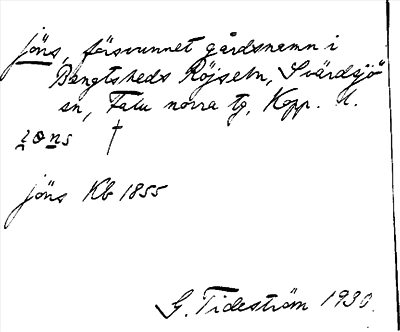 jöns, försvunnet gårdsnamn i
Bengtsheds Röjseln, Svärdsjö
sn, Falu norra tg, Kopp. l.
†
jöns Kb 1855
G. Tideström 1930.